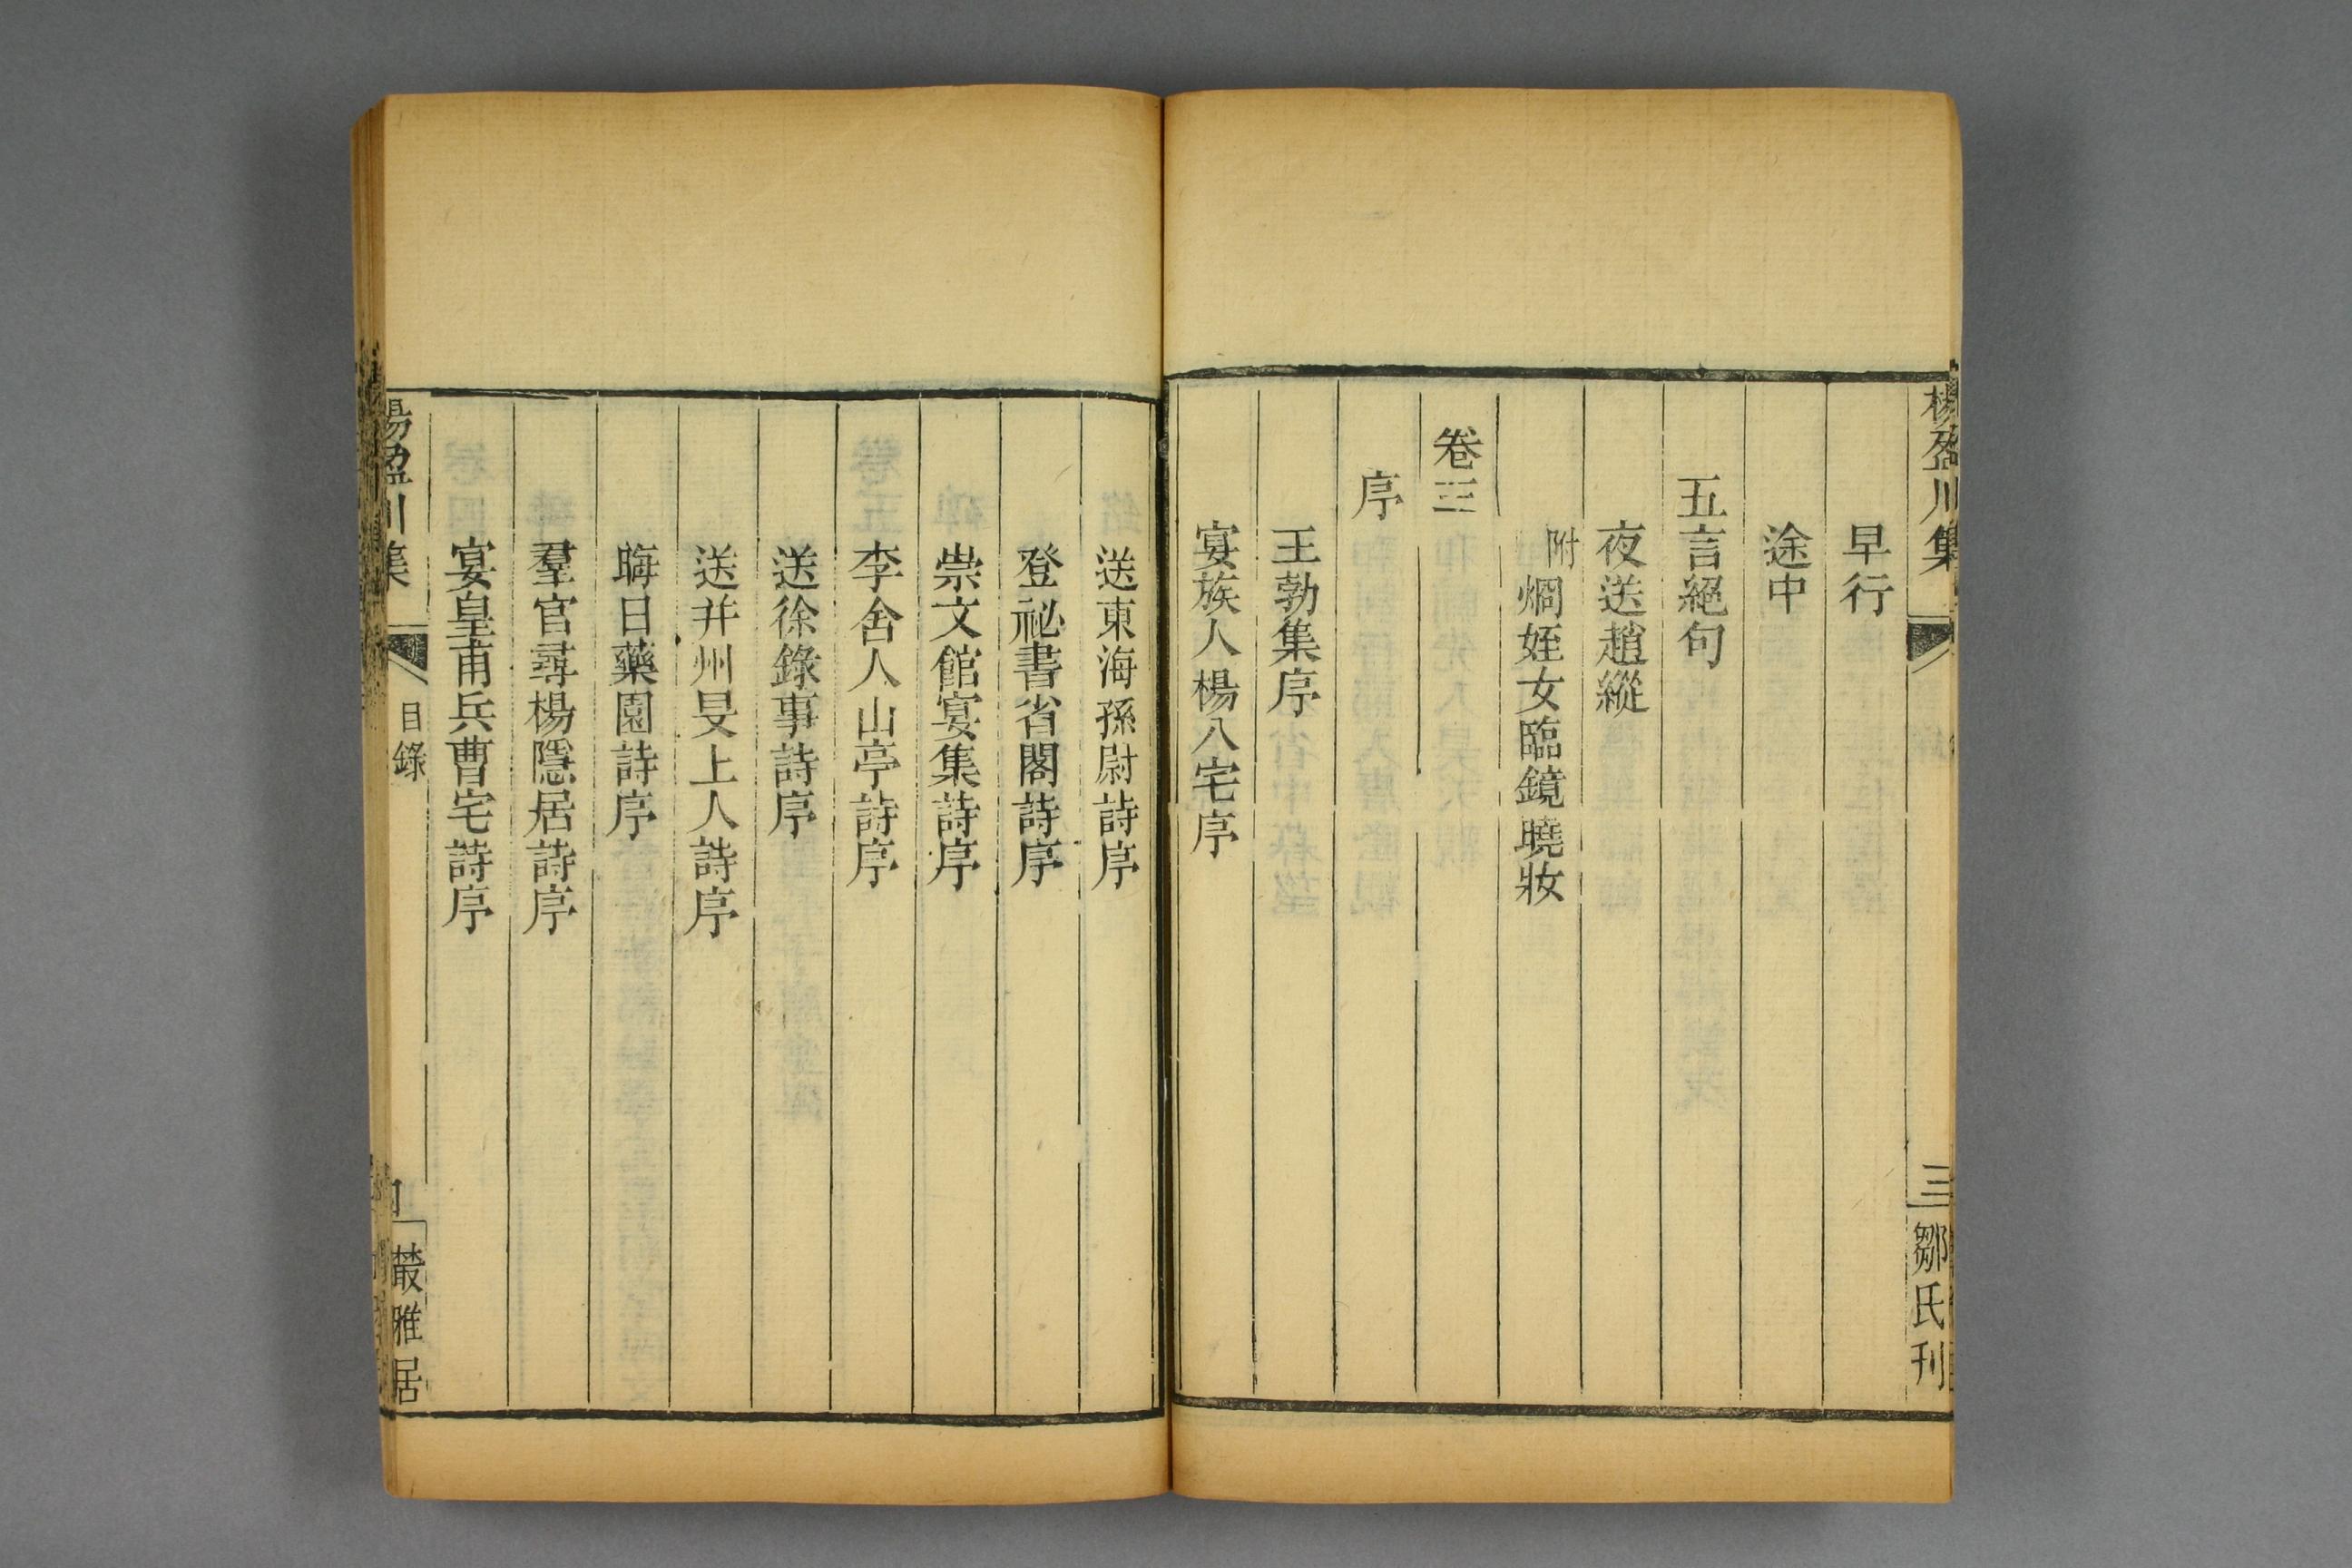 楊盈川集
三
鄒氏刊
早行
途中
五言絕句
夜送趙縱
附烱姪女臨鏡曉妝
卷三
序
王勃集序
宴族人楊八宅序
送東海孫尉詩序
登祕書省閣詩序
崇文館宴集詩序
李舍人山亭詩序
送徐錄事詩序
送并州旻上人詩序
晦日藥園詩序
羣官尋楊隱居詩序
宴皇甫兵曹宅詩序
楊盈川集
目錄
叢雅居